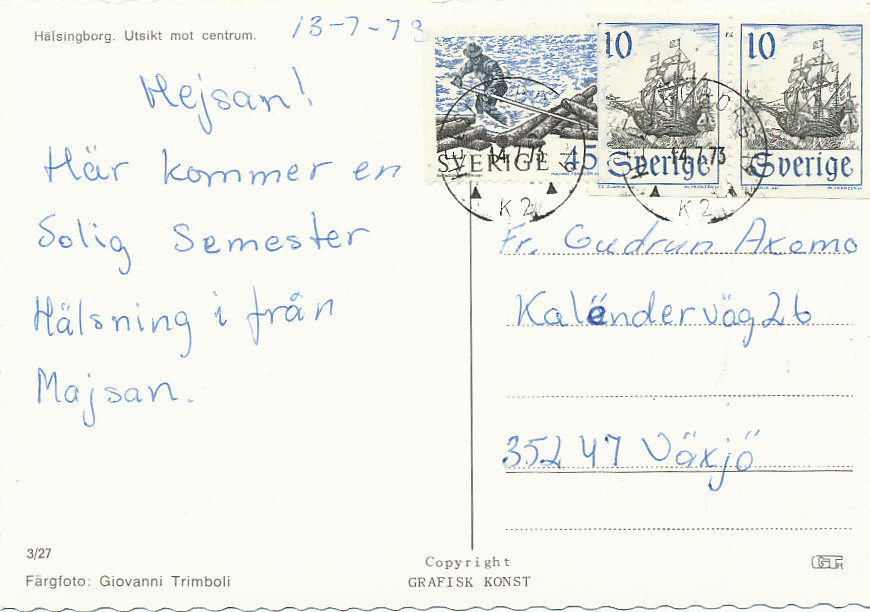 Hälsingborg. Utsikt mot centrum.
13-7-73
Hejsan!
Här kommer en
Solig Semester
Hälsning i från
Majsan.
SVERIGE 45
10
Sverige
10
Sverige
14.7.73
K 2
14.7.73
K 2
Fr. Gudrun Axemo
Kalënderväg 26
352 47 Växjö
3/27
Färgfoto: Giovanni Trimboli
Copyright
GRAFISK KONST